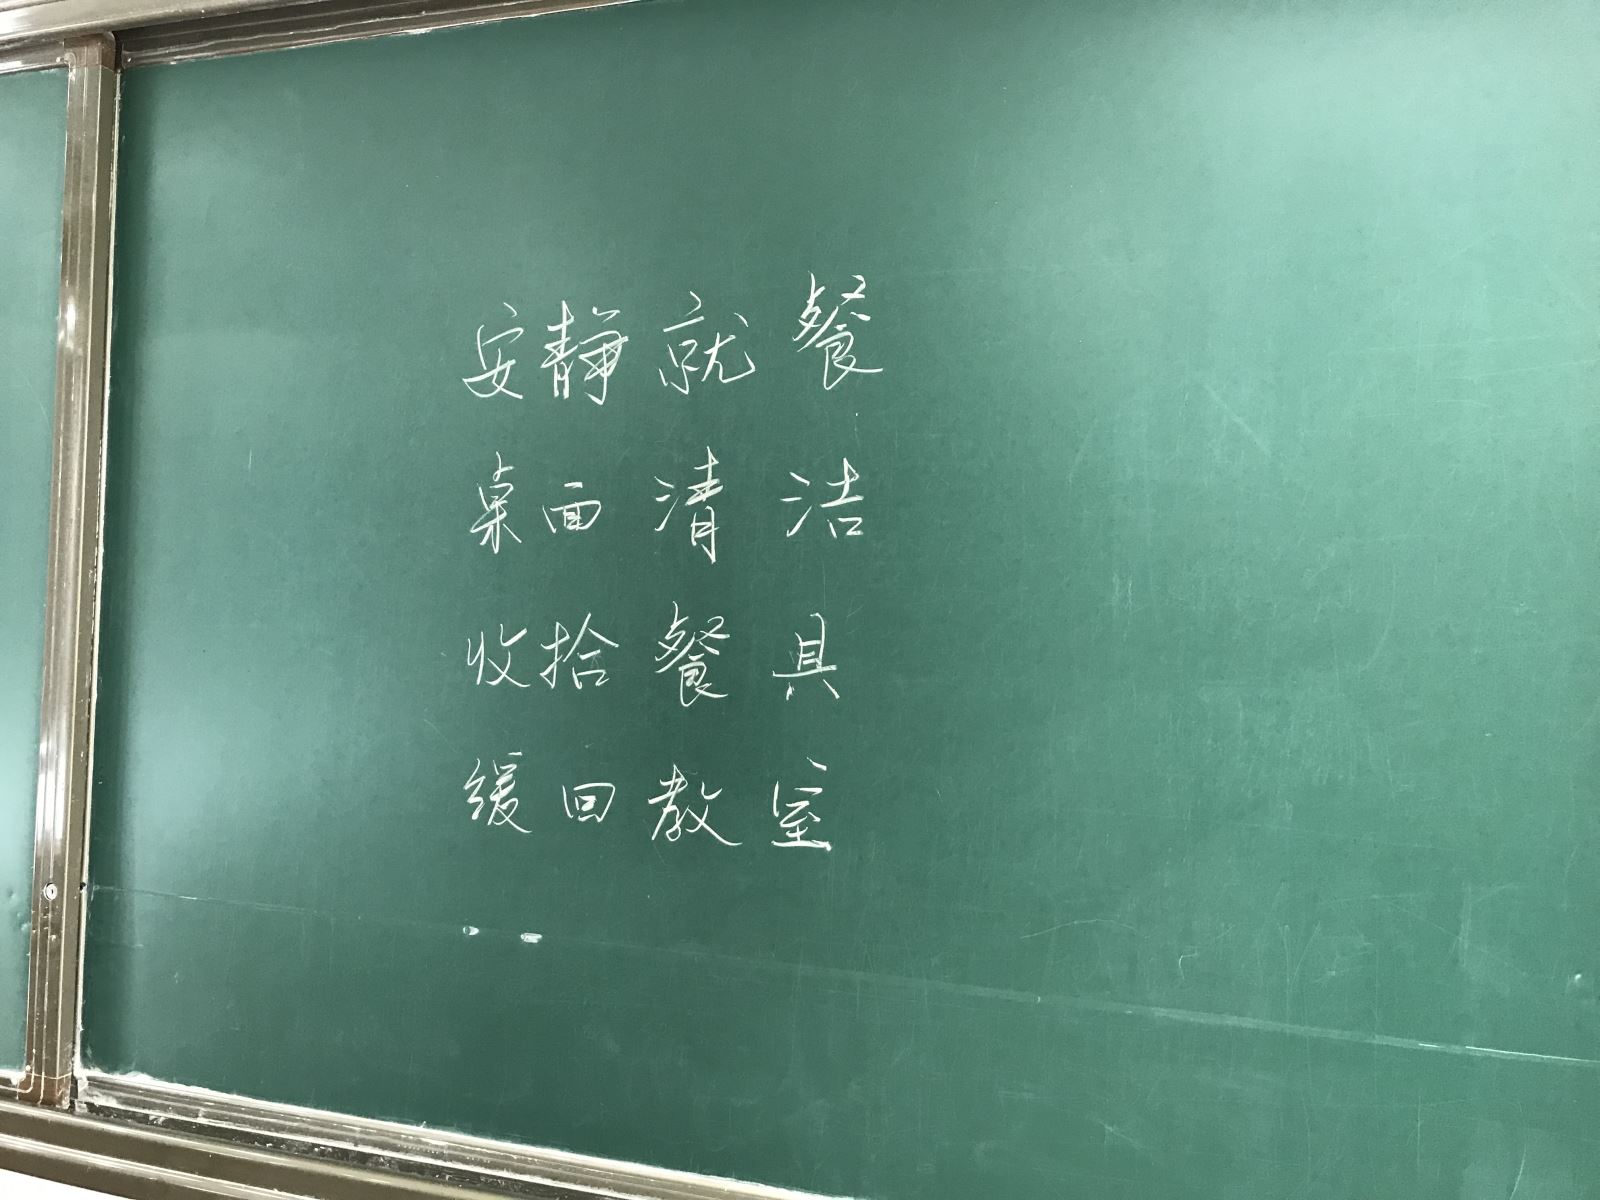 安静就餐
桌面清洁
收拾餐具
缓回教室